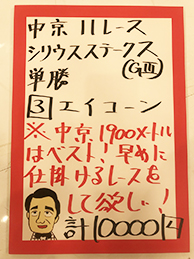 中京11レース
シリウスステークス
(GⅢ)
単勝
3 エイコーン
※中京1900メートル
はベスト!早めに
仕掛けるレースを
して欲しい!
計10000円